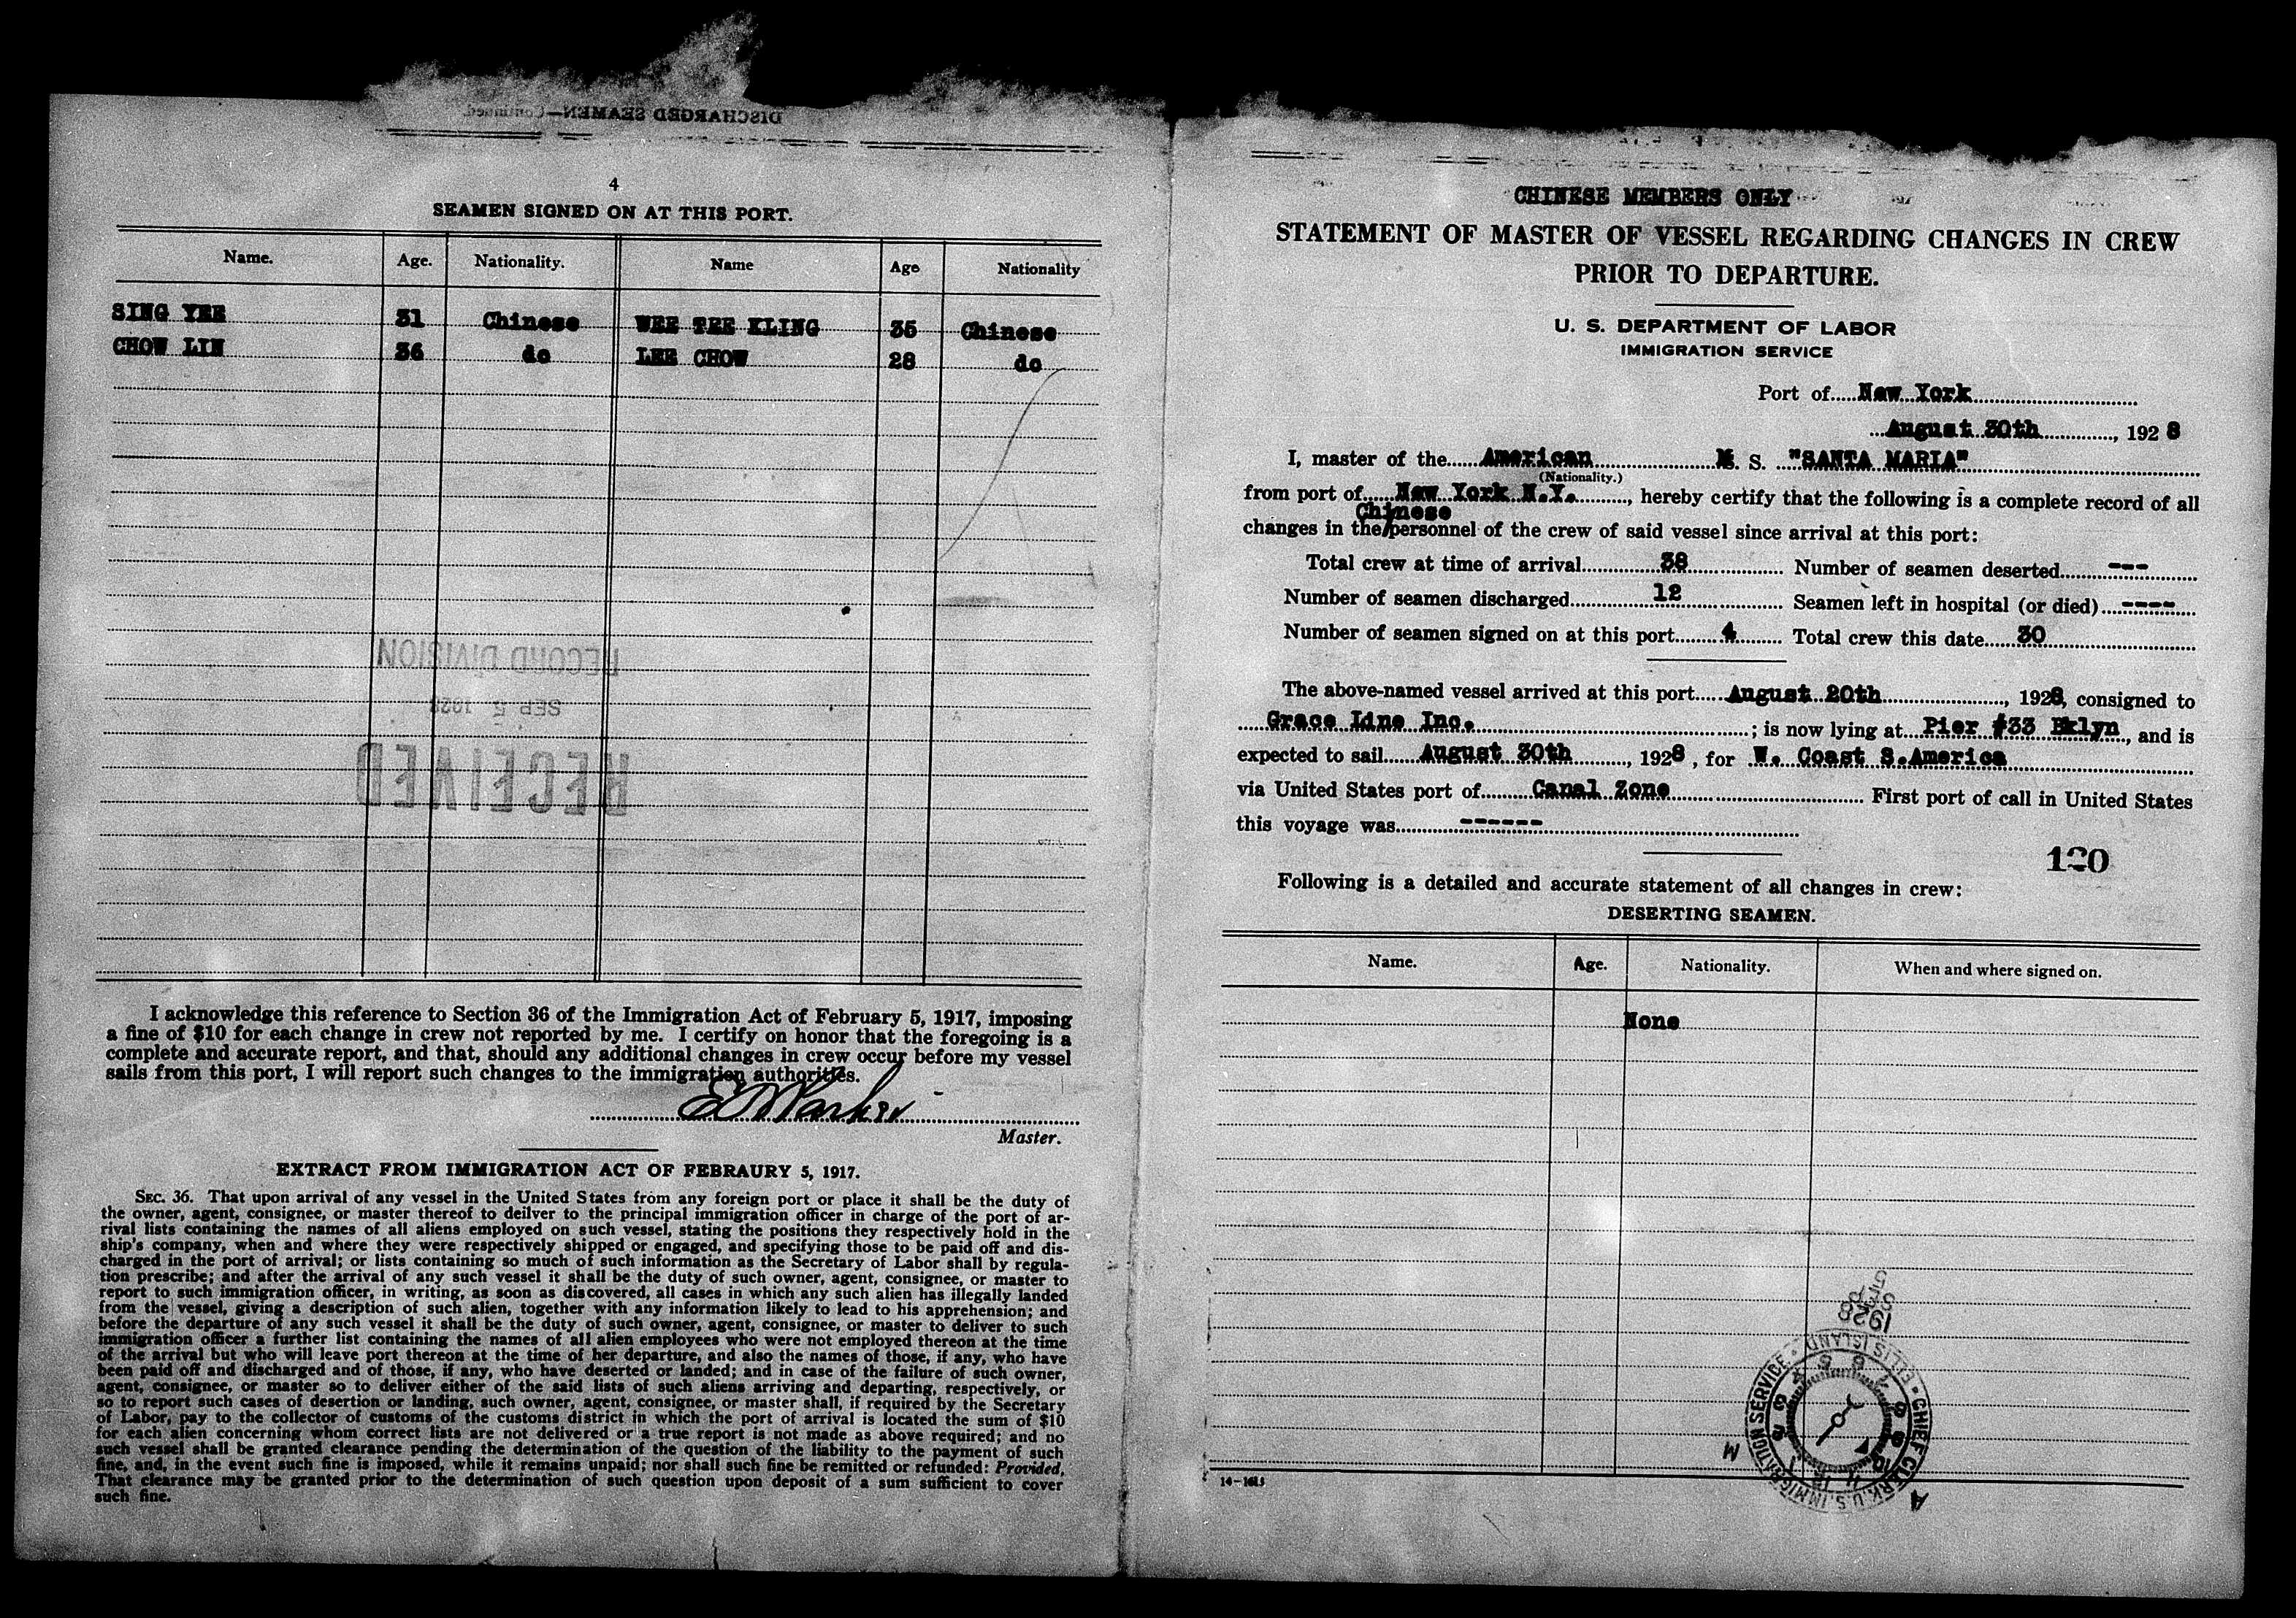 DISCHARGED SEAMEN—Continued.
4
SEAMEN SIGNED ON AT THIS PORT.
Name. Age. Nationality. Name Age Nationality
SING YEE 31 Chinese WEE TEE KLING 35 Chinese
CHOW LIN 36 do LEE CHOW 28 do
RECORD DIVISION
SEP 5 1928
RECEIVED
I acknowledge this reference to Section 36 of the Immigration Act of February 5, 1917, imposing
a fine of $10 for each change in crew not reported by me. I certify on honor that the foregoing is a
complete and accurate report, and that, should any additional changes in crew occur before my vessel
sails from this port, I will report such changes to the immigration authorities.
Master.
EXTRACT FROM IMMIGRATION ACT OF FEBRAURY 5, 1917.
SEC. 36. That upon arrival of any vessel in the United States from any foreign port or place it shall be the duty of
the owner, agent, consignee, or master thereof to deilver to the principal immigration officer in charge of the port of ar-
rival lists containing the names of all aliens employed on such vessel, stating the positions they respectively hold in the
ship's company, when and where they were respectively shipped or engaged, and specifying those to be paid off and dis-
charged in the port of arrival; or lists containing so much of such information as the Secretary of Labor shall by regula-
tion prescribe; and after the arrival of any such vessel it shall be the duty of such owner, agent, consignee, or master to
report to such immigration officer, in writing, as soon as discovered, all cases in which any such alien has illegally landed
from the vessel, giving a description of such alien, together with any information likely to lead to his apprehension; and
before the departure of any such vessel it shall be the duty of such owner, agent, consignee, or master to deliver to such
immigration officer a further list containing the names of all alien employees who were not employed thereon at the time
of the arrival but who will leave port thereon at the time of her departure, and also the names of those, if any, who have
been paid off and discharged and of those, if any, who have deserted or landed; and in case of the failure of such owner,
agent, consignee, or master so to deliver either of the said lists of such aliens arriving and departing, respectively, or
so to report such cases of desertion or landing, such owner, agent, consignee, or master shall, if required by the Secretary
of Labor, pay to the collector of customs of the customs district in which the port of arrival is located the sum of $10
for each alien concerning whom correct lists are not delivered or a true report is not made as above required; and no
such vessel shall be granted clearance pending the determination of the question of the liability to the payment of such
fine, and, in the event such fine is imposed, while it remains unpaid; nor shall such fine be remitted or refunded: Provided,
That clearance may be granted prior to the determination of such question upon deposit of a sum sufficient to cover
such fine.
CHINESE MEMBERS ONLY
STATEMENT OF MASTER OF VESSEL REGARDING CHANGES IN CREW
PRIOR TO DEPARTURE.
U. S. DEPARTMENT OF LABOR
IMMIGRATION SERVICE
Port of New York
August 30th, 1928
I, master of the American M. S. "SANTA MARIA"
(Nationality.)
from port of New York N.Y., hereby certify that the following is a complete record of all
Chinese
changes in the/personnel of the crew of said vessel since arrival at this port:
Total crew at time of arrival 38 Number of seamen deserted ---
Number of seamen discharged 12 Seamen left in hospital (or died) ----
Number of seamen signed on at this port 4 Total crew this date 30
The above-named vessel arrived at this port August 20th, 1928, consigned to
Grace Line Inc. ; is now lying at Pier #33 Bklyn, and is
expected to sail August 30th, 1928, for W. Coast S.America
via United States port of Canal Zone First port of call in United States
this voyage was ------
120
Following is a detailed and accurate statement of all changes in crew:
DESERTING SEAMEN.
Name. Age. Nationality. When and where signed on.
None
SEP 5 1928
CHIEF CLERK U.S. IMMIGRATION SERVICE ELLIS ISLAND
A M